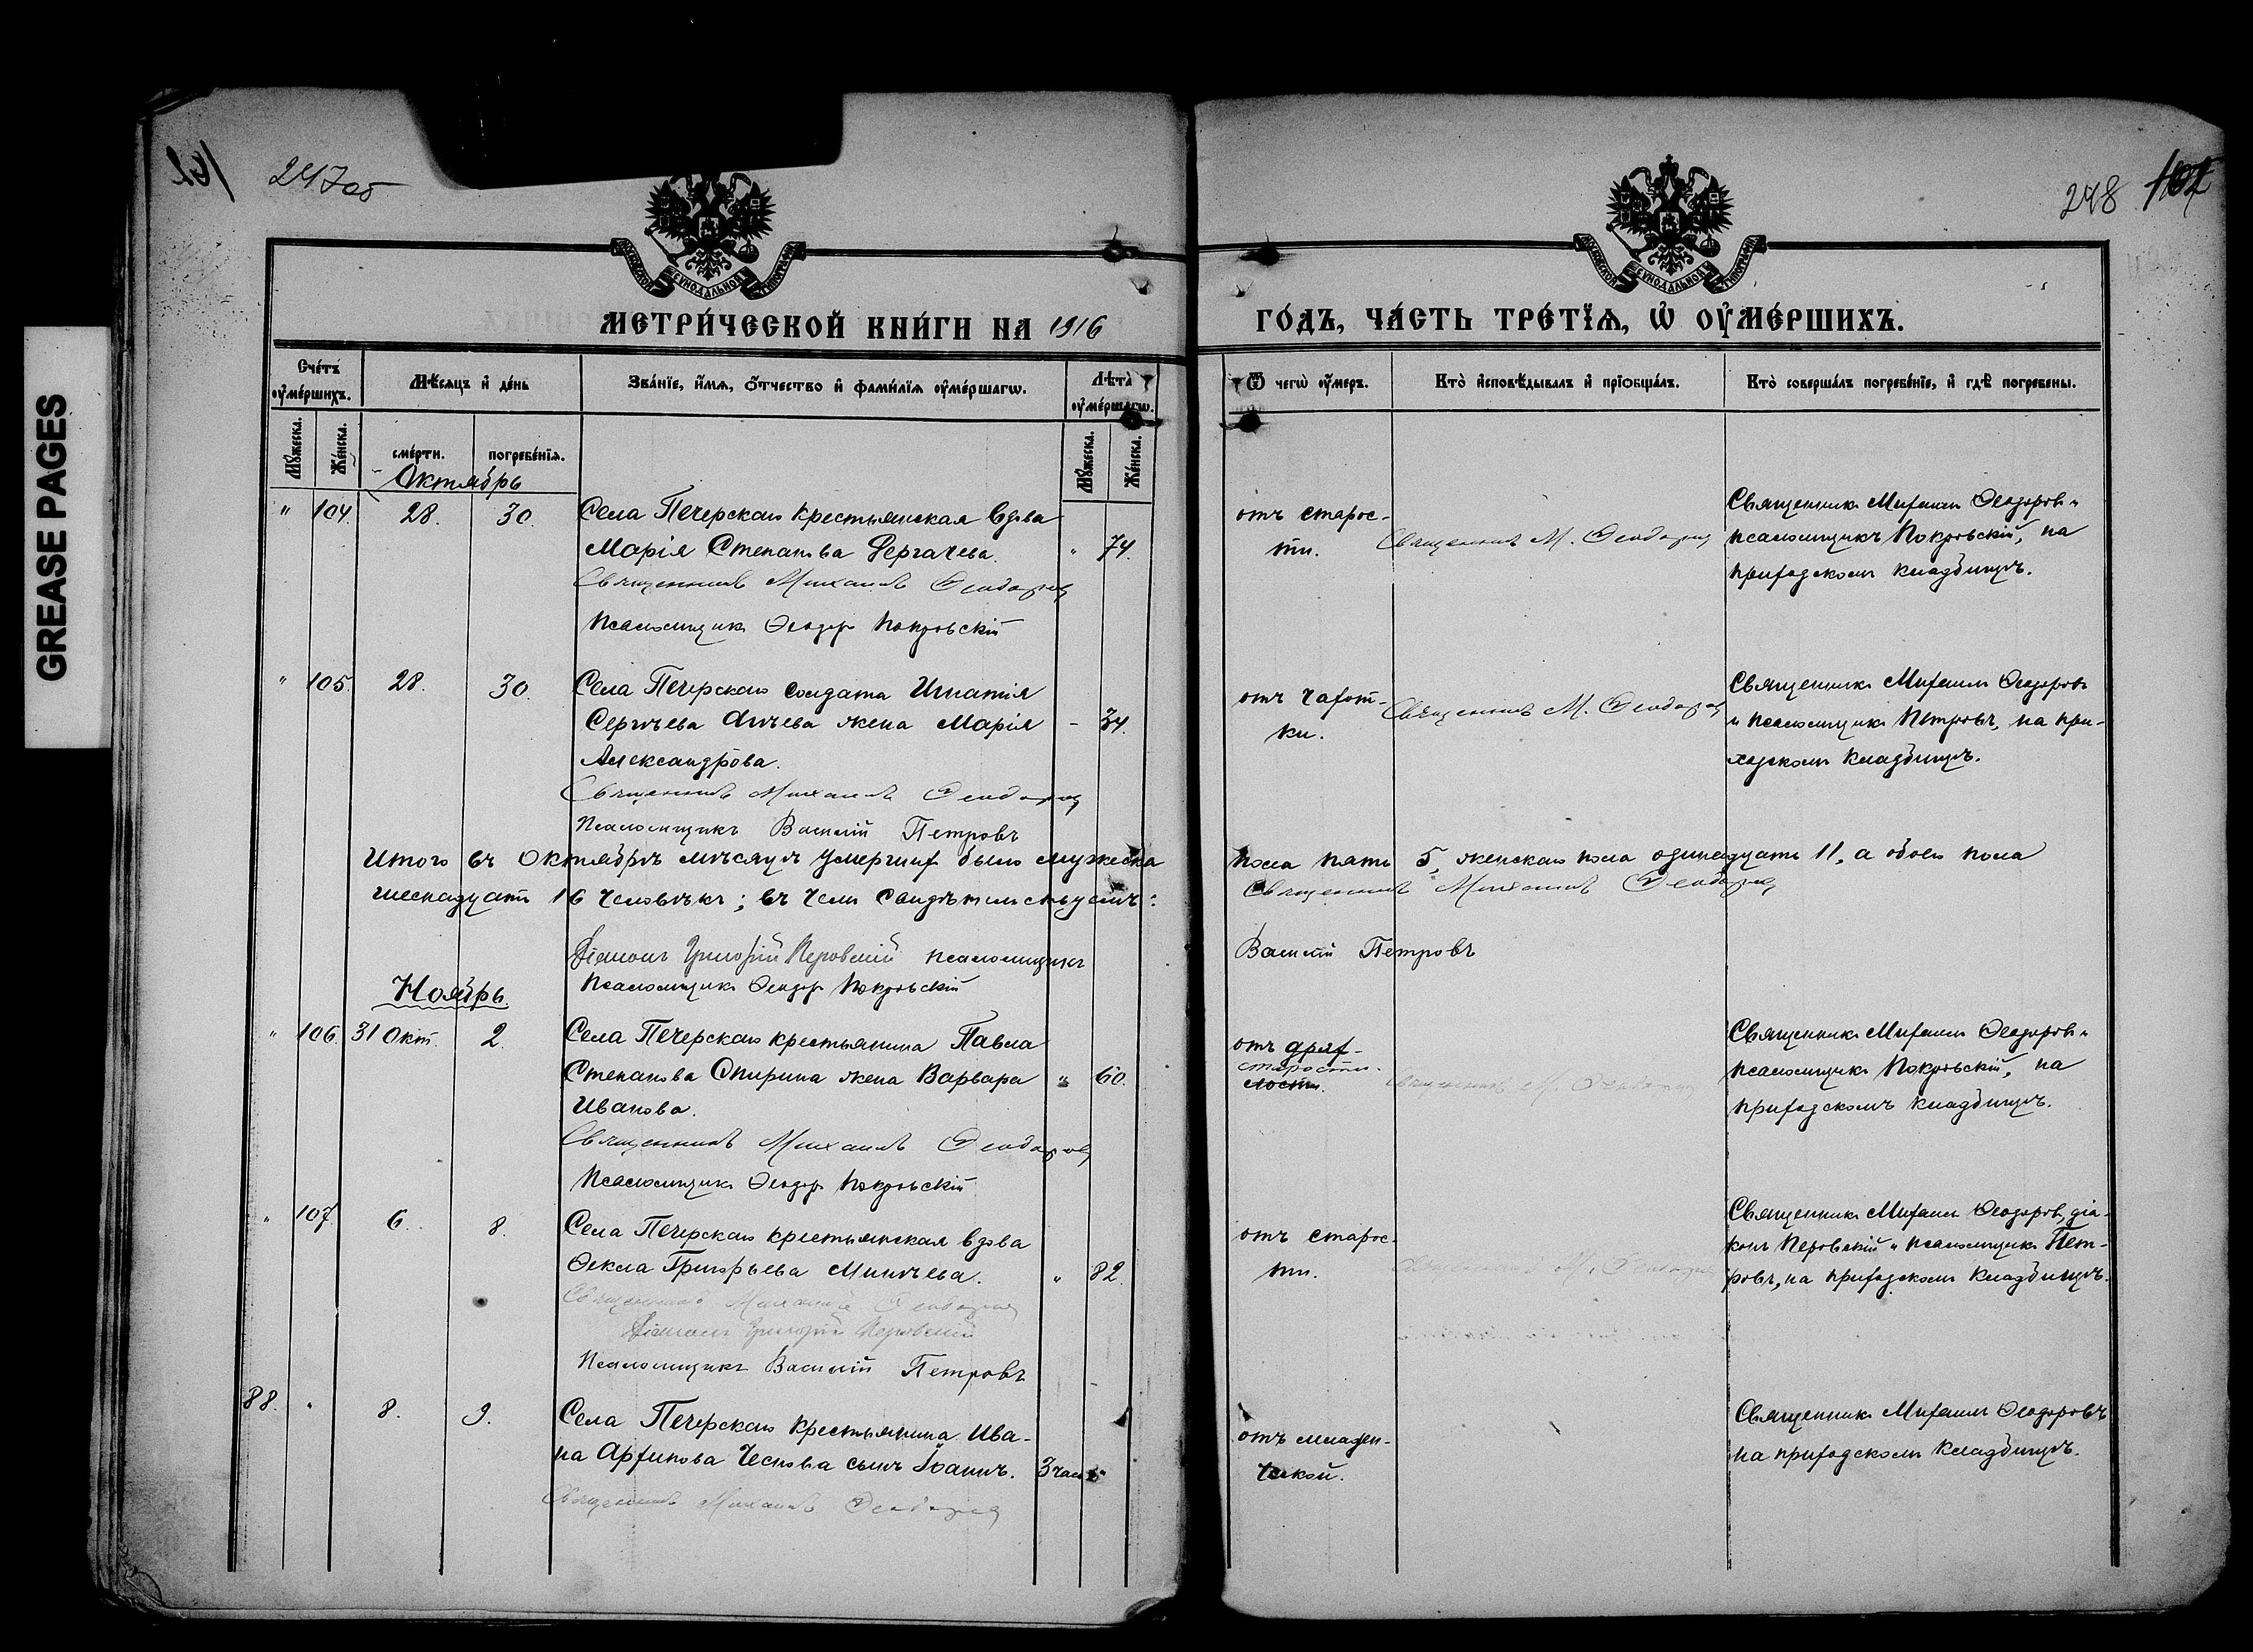 GREASE PAGES
247об
248
МОСКОВСКОЙ СѴНОДАЛЬНОЙ ТИПОГРАФІИ
МОСКОВСКОЙ СѴНОДАЛЬНОЙ ТИПОГРАФІИ
МЕТРИ́ЧЕСКОЙ КНИ́ГИ НА 1916
ГО́ДЪ, ЧА́СТЬ ТРЕ́ТЇѦ, Ѡ ОУ҆МЕ́РШИХЪ.
Сче́тъ оу҆ме́ршихъ.
Мѣ́сѧцъ и҆ де́нь
Зва́нїе, и҆́мѧ, ѻ҆́тчество и҆ фами́лїѧ оу҆ме́ршагѡ.
Лѣ́та оу҆ме́ршагѡ.
Ѿ чегѡ̀ оу҆́меръ.
Кто̀ и҆сповѣ́дывалъ и҆ прїѡбща́лъ.
Кто̀ соверша́лъ погребе́нїе, и҆ гдѣ̀ погребены.
Мꙋ́жеска.
Же́нска.
сме́рти.
погребе́нїѧ.
Мꙋ́жеска.
Же́нска.
Октябрь
" 104. 28. 30. Села Печерскаго крестьянская вдова
Марія Степанова Дергачева. " 74.
Священникъ Михаилъ Ѳеодоровъ
Псаломщикъ Ѳеодоръ Покровскій
отъ старос-
ти.
Священникъ М. Ѳеодоровъ
Священникъ Михаилъ Ѳеодоровъ и
псаломщикъ Покровскій, на
приходскомъ кладбищѣ.
" 105. 28. 30. Села Печерскаго солдата Игнатія
Сергѣева жена Марія - 34.
Александрова.
Священникъ Михаилъ Ѳеодоровъ
Псаломщикъ Василій Петровъ
отъ чахот-
ки.
Священникъ М. Ѳеодоровъ
Священникъ Михаилъ Ѳеодоровъ
и псаломщикъ Петровъ, на при-
ходскомъ кладбищѣ.
Итого въ Октябрѣ мѣсяцѣ умершихъ было мужеска пола пять 5, женскаго пола одинадцать 11, а обоего пола
шеснадцать 16 человѣкъ; въ чемъ свидѣтельствуемъ: Священникъ Михаилъ Ѳеодоровъ
Діаконъ Григорій Перовскій Псаломщикъ Василій Петровъ
Псаломщикъ Ѳеодоръ Покровскій
Ноябрь.
" 106. 31 Окт. 2. Села Печерскаго крестьянина Павла
Степанова Спирина жена Варвара " 60.
Иванова.
Священникъ Михаилъ Ѳеодоровъ
Псаломщикъ Ѳеодоръ Покровскій
отъ дрях-
старости.
лости.
Священникъ М. Ѳеодоровъ
Священникъ Михаилъ Ѳеодоровъ и
псаломщикъ Покровскій, на
приходскомъ кладбищѣ.
" 107. 6. 8. Села Печерскаго крестьянская вдова
Ѳекла Григорьева Минѣева. " 82.
Священникъ Михаилъ Ѳеодоровъ
Діаконъ Григорій Перовскій
Псаломщикъ Василій Петровъ
отъ старос-
ти.
Священникъ М. Ѳеодоровъ
Священникъ Михаилъ Ѳеодоровъ, діа-
конъ Перовскій и псаломщикъ Пет-
ровъ, на приходскомъ кладбищѣ.
88. " 8. 9. Села Печерскаго крестьянина Ива-
на Архипова Чеснова сынъ Іоаннъ. 3 час. "
Священникъ Михаилъ Ѳеодоровъ
отъ младен-
ческой.
Священникъ Михаилъ Ѳеодоровъ
на приходскомъ кладбищѣ.